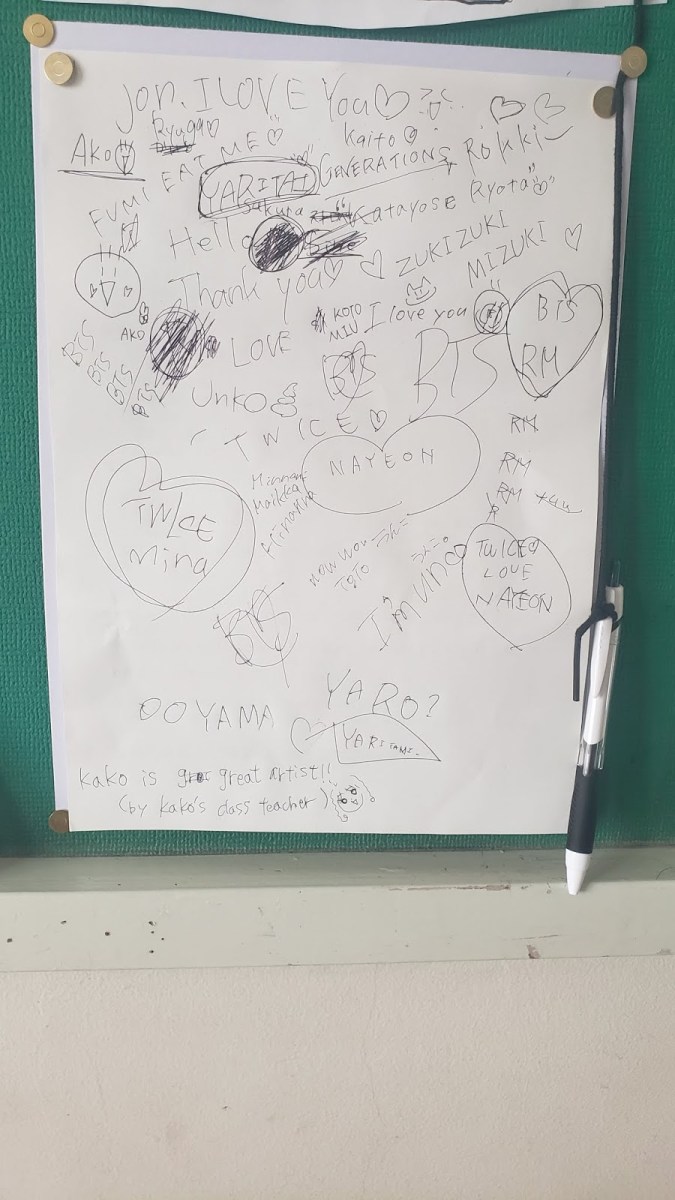 Jon. I LOVE You
Ryuga
Kaito
Ako
FUMI EAT ME
YARITAI
GENERATIONS
Rokki
Sakura
Katayose Ryota
Hello
ZUKIZUKI
MIZUKI
Thank you
KOTO
MIU
I love you
BTS
RM
AKO
LOVE
BTS
BTS
BTS
BTS
BTS
BTS
Unko
TWICE
RM
NAYEON
RM
RM
TWICE
Mina
TWICE
LOVE
NAYEON
うんこ
うんこ。
I'm unco
BTS
OOYAMA
YARO?
kako is great artist!!
(by kako's class teacher)